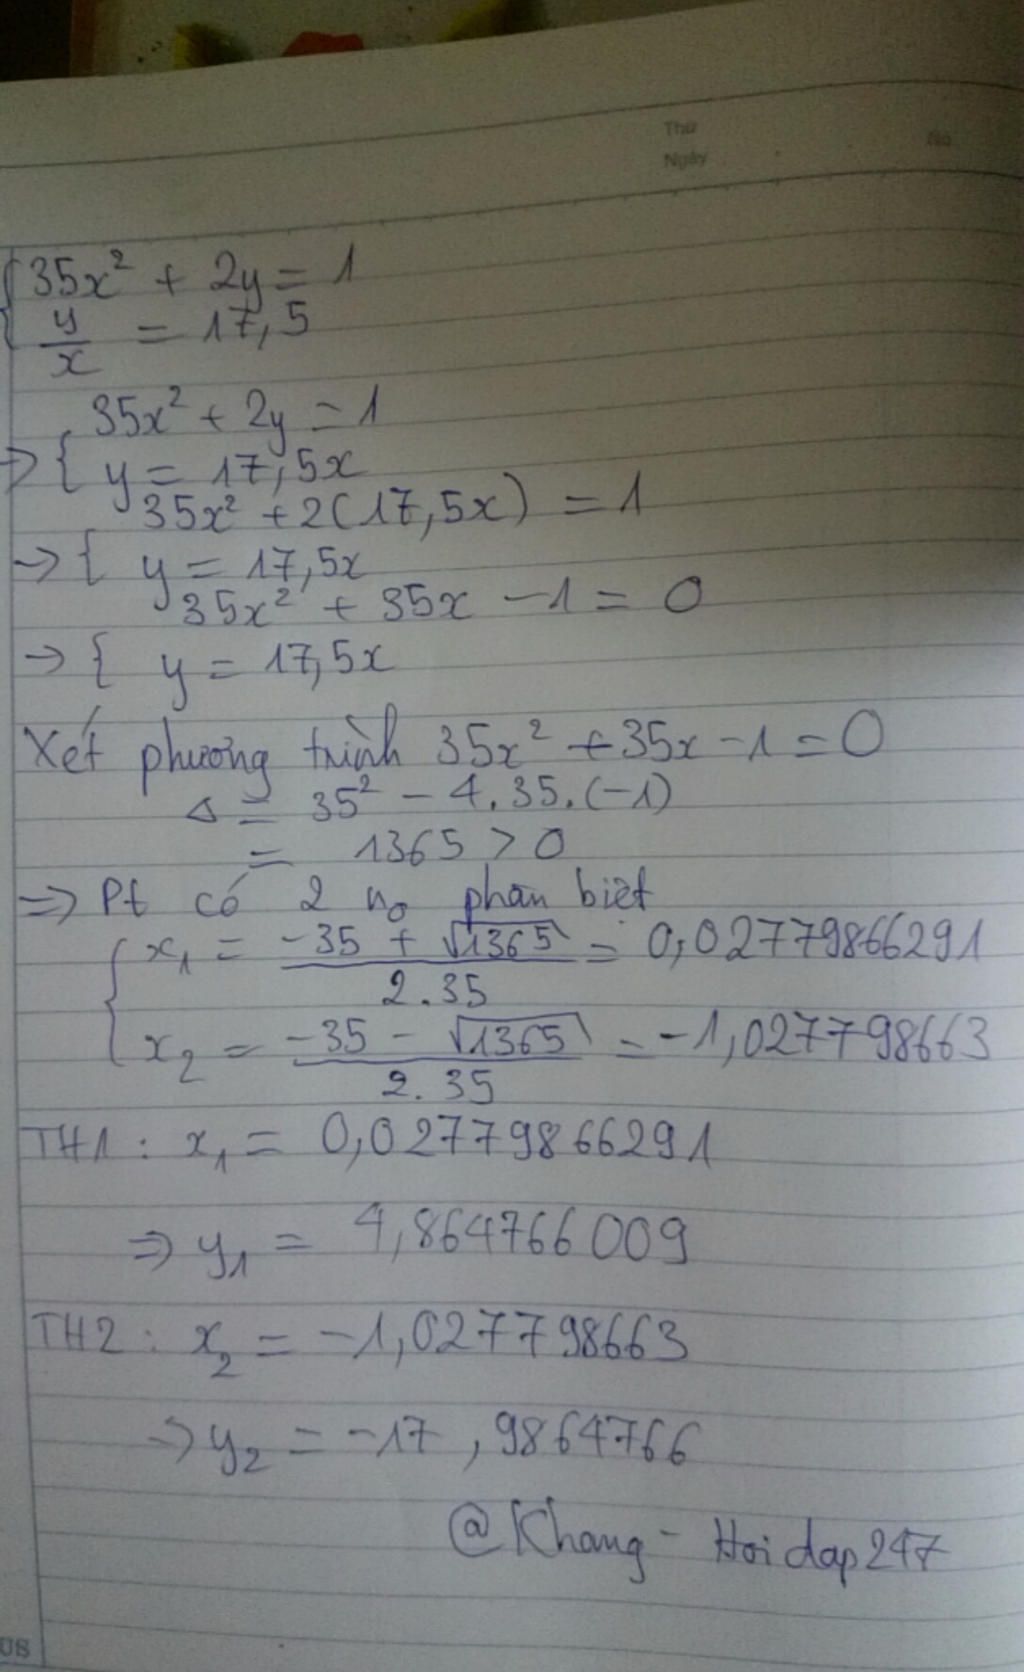 Thứ
Ngày
No
{ 35x² + 2y = 1
y/x = 17,5
35x² + 2y = 1
=> { y = 17,5x
35x² + 2(17,5x) = 1
-> { y = 17,5x
35x² + 35x - 1 = 0
-> { y = 17,5x
Xét phương trình 35x² + 35x - 1 = 0
Δ = 35² - 4.35.(-1)
= 1365 > 0
=> Pt có 2 no phân biệt
{ x₁ = (-35 + √1365)/(2.35) = 0,02779866291
x₂ = (-35 - √1365)/(2.35) = -1,027798663
TH1 : x₁ = 0,02779866291
=> y₁ = 4,864766009
TH2 : x₂ = -1,027798663
=> y₂ = -17,9864766
@Khang - Hoidap247